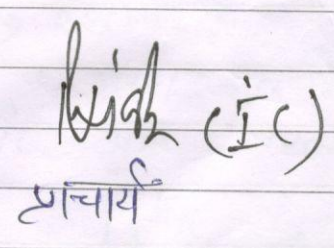 (I C)
प्राचार्य